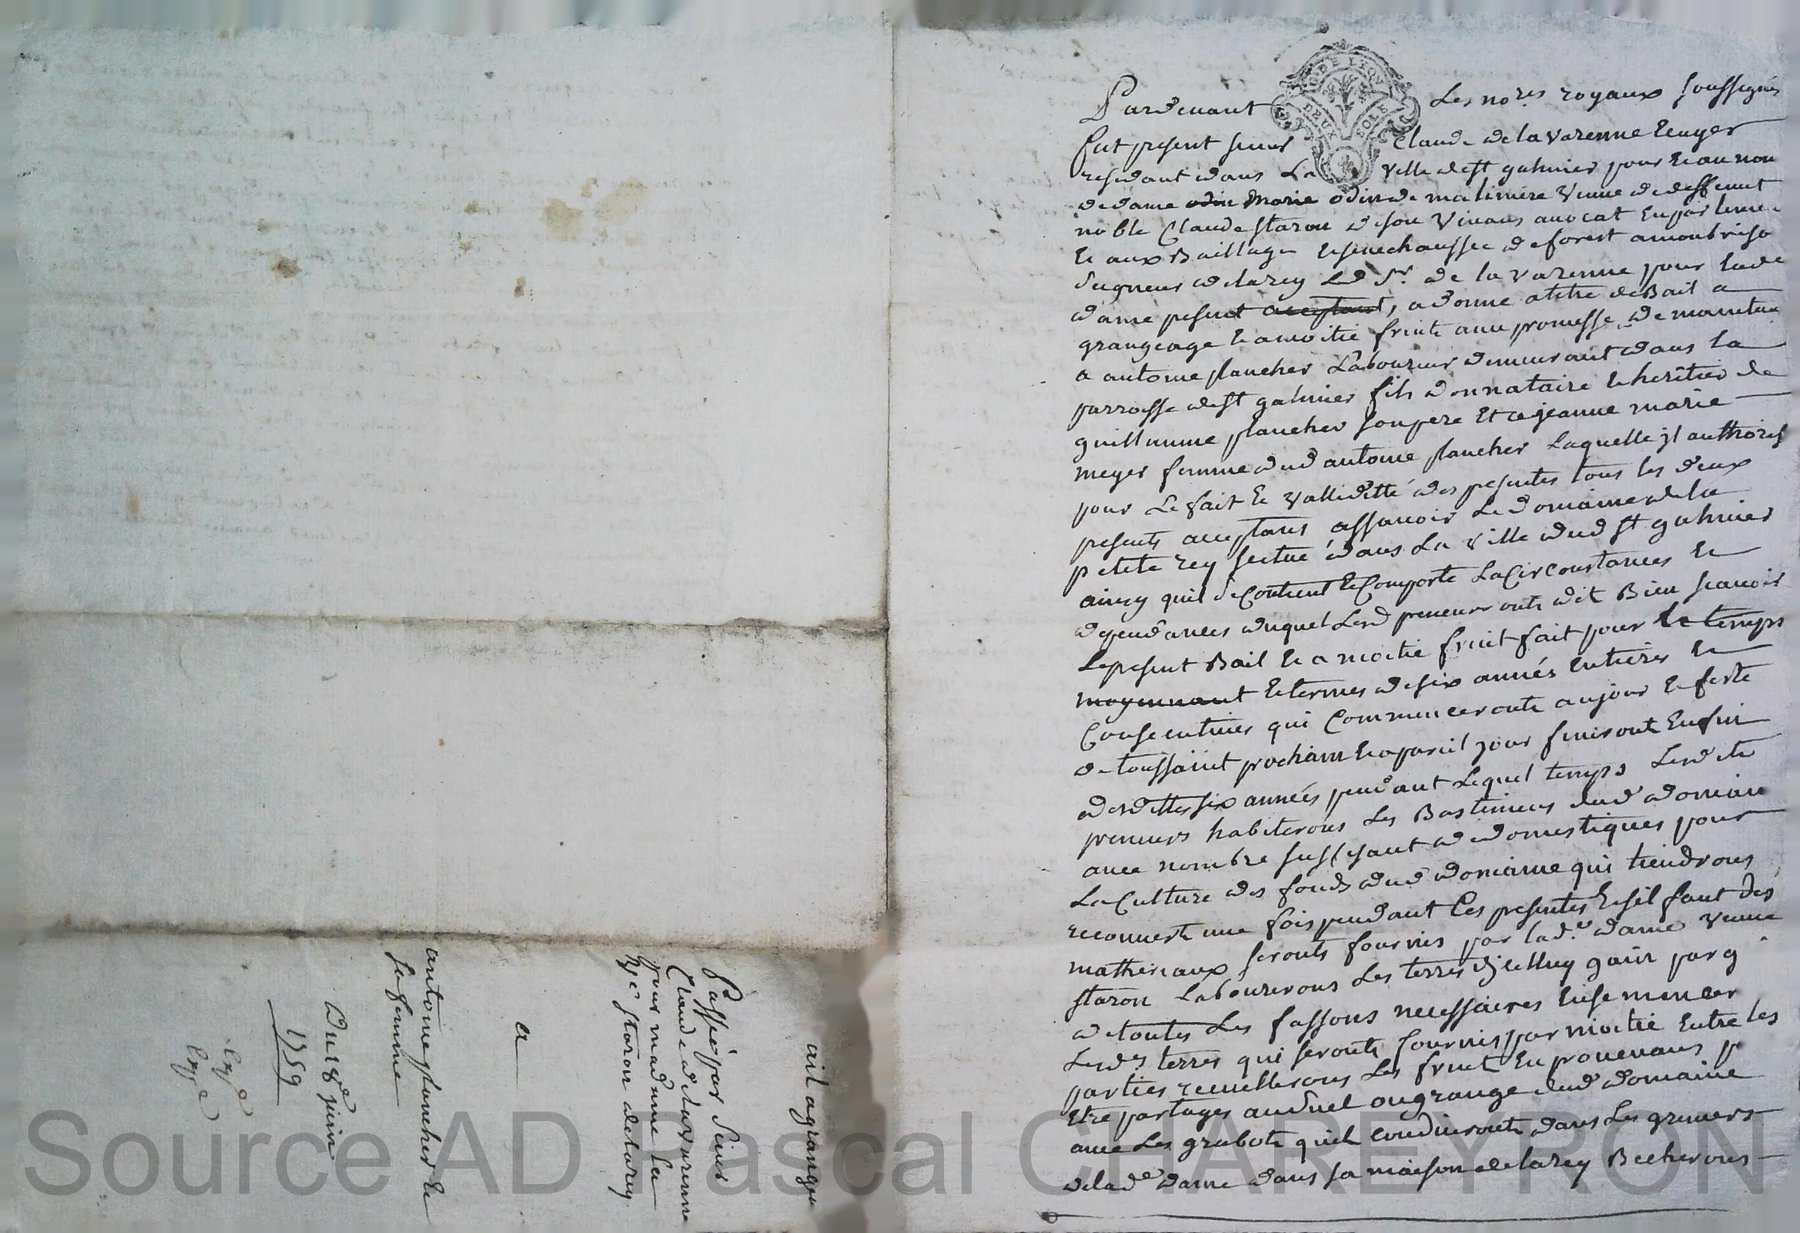 Pardevant Les no.res royaux soussignés
fut present sieur Claude de la varenne Ecuyer
residant dans La ville de st galmier pour Et au nom
de dame odin Marie odin de maliniere veuve de deffeunt
noble Claude staron de son vivant avocat En parleme
Et aux Baillage Et senechaussee de forest a montbriso
seigneur de larey Led Sr. de la varenne pour lad.e
dame pesent acceptant, a donne a titre de Bail a
grangeage Et a moitie fruits avec promesse de maintenue
a antoine plancher Laboureur demeurant dans la
parroisse de st galmier fils donnataire Et heritier de
guillaume plancher son pere Et a jeanne marie
meyer femme dud antoine plancher Laquelle jl authorise
pour Le fait Et valliditté des pesentes tous les deux
pesents acceptans assavoir Le domaine de la
petite rey scitué dans La ville dud st galmier
ainsy quil se Contient Et Comporte La Circonstances Et
dependances duquel Lesd preneurs ont dit Bien scavoir
Le pesent Bail Et a moitie fruit fait pour le temps
moyennant Et termes de six annés Entieres Et
Consecutives qui Commenceronts au jour Et feste
de toussaint prochain Et a pareil jour finiront Enfin
desdittes six annés pendant Lequel temps Lesdits
preneurs habiterons Les Bastiments dud domaine
avec nombre suffisant de domestiques pour
La Culture des fonds dud domaine qui tiendrons
recouverts une fois pendant Ces presentes Et sil faut des
matheriaux seronts fournis par lad.e dame veuve
staron Labourerons Les terres djcelluy
de toutes Les fassons necessaires Ensemencer
Lesd.s terres qui seronts fournis par moitie Entre les
parties recuellierons Les fruit En provenans p
Etre partages au duel ou grange dud domaine
avec Les grabots quil Conduironts dans Les greniers
de lad.e dame dans sa maison de larey Becherons
ail a grangage
Passé par sieur
Claude de la varenne
pour madame la
v.ve staron de larey
a
antoine plancher Et
sa femme
Du 18e juin
1759
Exp.e
Exp.e
Source AD Pascal CHAREYRON